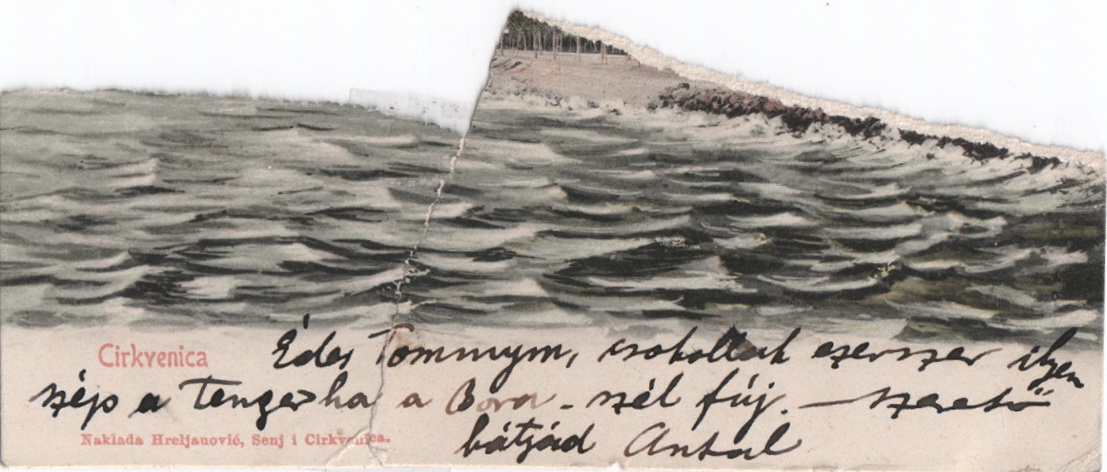 Cirkvenica
Édes Tommym, csokollak ezerszer ilyen
szép a Tenger ha a Bora - szél fúj. — szerető
Naklada Hreljanović, Senj i Cirkvenica.
bátjád Antal